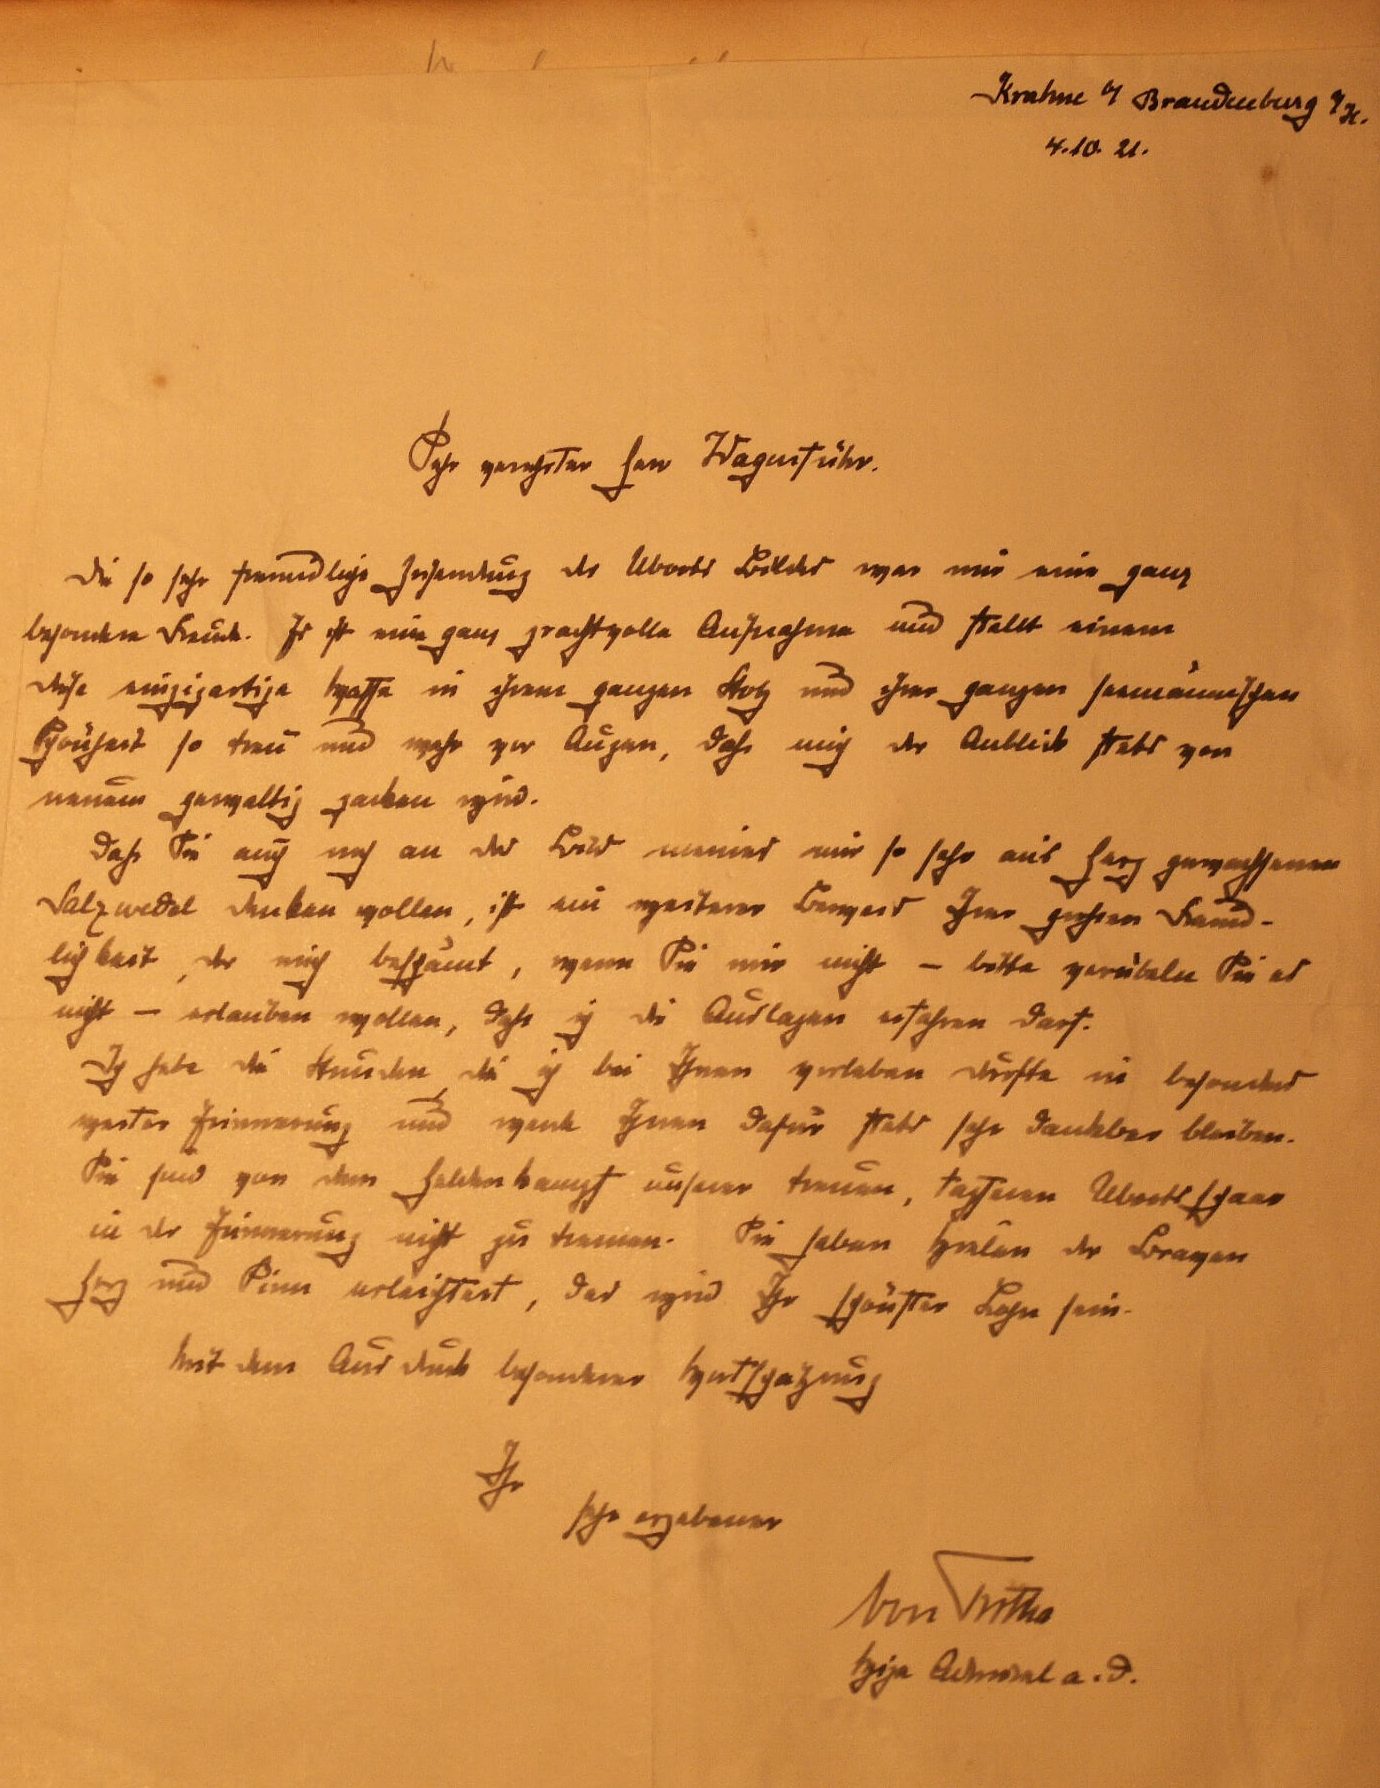 Krahne b/ Brandenburg a/H.
4.10.21.
Sehr verehrter Herr Wagenführ.
Die so sehr freundliche Zusendung des Uboots Bildes war mir eine ganz
besondere Freude. Es ist eine ganz prachtvolle Aufnahme und stellt einem
diese einzigartige Waffe in ihrem ganzen Stolz und ihrer ganzen seemännischen
Schönheit so treu und wahr vor Augen, dass mich der Anblick stets von
neuem gewaltig packen wird.
Dass Sie auch noch an das Bild meines mir so sehr ans Herz gewachsenen
Salzwedel denken wollen, ist ein weiterer Beweis Ihrer grossen Freund-
lichkeit, der mich beschämt, wenn Sie mir nicht – bitte verübeln Sie es
nicht – erlauben wollen, dass ich die Auslagen erfahren darf.
Ich habe die Stunden, die ich bei Ihnen verleben durfte in besonders
werter Erinnerung und werde Ihnen dafür stets sehr dankbar bleiben.
Sie sind von dem Heldenkampf unserer treuen, tapferen Ubootsschaar
in der Erinnerung nicht zu trennen. Sie haben Vielen der Braven
Herz und Sinn erleichtert, das wird Ihr schönster Lohn sein.
Mit dem Ausdruck besonderer Wertschätzung
Ihr
sehr ergebener
von Trotha
Vize Admiral a.D.